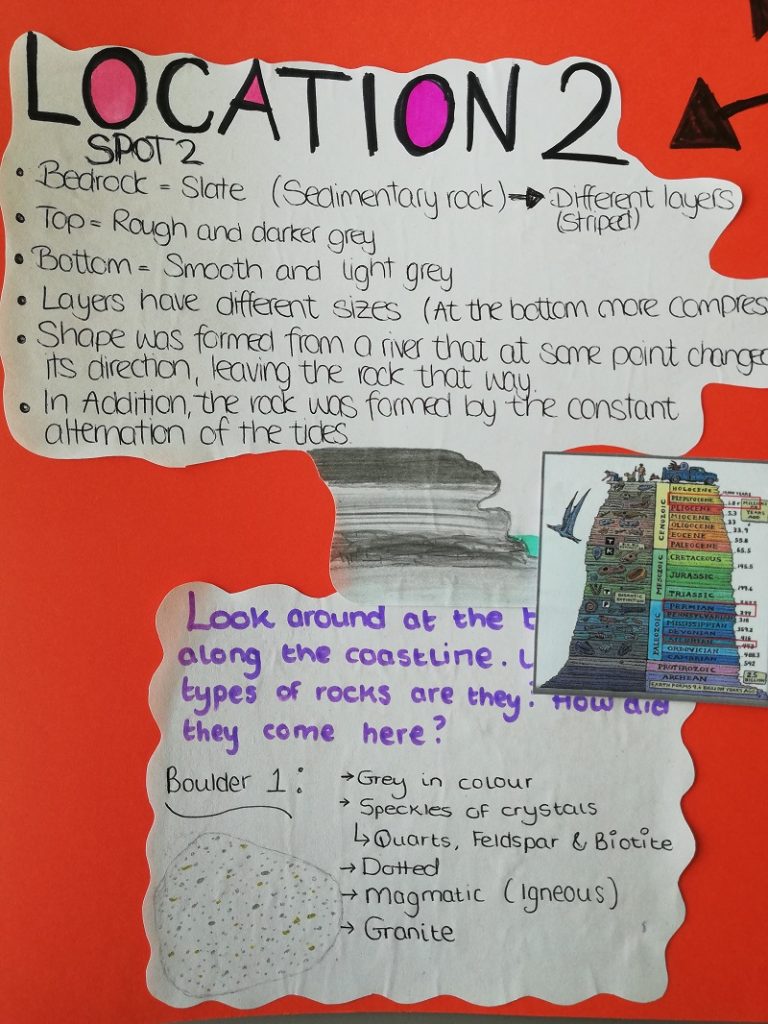 LOCATION 2
SPOT 2
• Bedrock = Slate (Sedimentary rock) → Different layers
(striped)
• Top = Rough and darker grey
• Bottom = Smooth and light grey
• Layers have different sizes (At the bottom more compress
• Shape was formed from a river that at some point changed
its direction, leaving the rock that way.
• In Addition, the rock was formed by the constant
alternation of the tides.
HOLOCENE
PLEISTOCENE
PLIOCENE
MIOCENE
OLIGOCENE
EOCENE
PALEOCENE
CENOZOIC
CRETACEOUS
JURASSIC
TRIASSIC
MESOZOIC
PERMIAN
PENNSYLVANIAN
MISSISSIPPIAN
DEVONIAN
SILURIAN
ORDOVICIAN
CAMBRIAN
PALEOZOIC
PROTEROZOIC
ARCHEAN
EARTH FORMS 4.6 BILLION YEARS AGO
MILLIONS
OF
YEARS
AGO
5.3
33.9
55.8
65.5
145.5
199.6
299
318
359.2
416
488.3
542
2.5
BILLION
Look around at the
along the coastline.
types of rocks are they? How did
they come here?
Boulder 1:
→ Grey in colour
→ Speckles of crystals
↳ Quarts, Feldspar & Biotite
→ Dotted
→ Magmatic (Igneous)
→ Granite